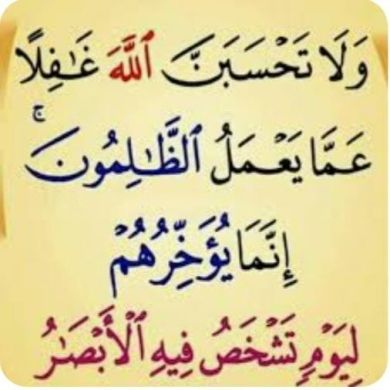 وَلَا تَحْسَبَنَّ ٱللَّهَ غَٰفِلًا
عَمَّا يَعْمَلُ ٱلظَّٰلِمُونَ ۚ
إِنَّمَا يُؤَخِّرُهُمْ
لِيَوْمٍ تَشْخَصُ فِيهِ ٱلْأَبْصَٰرُ